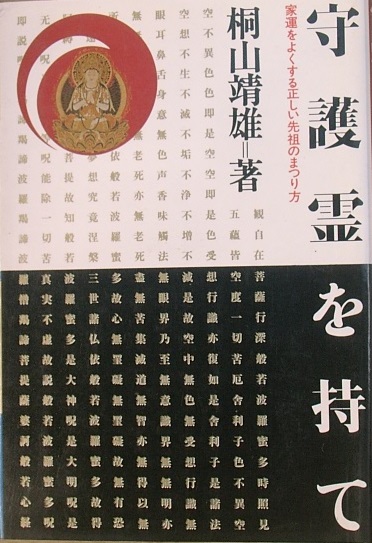 守護霊を持て
家運をよくする正しい先祖のまつり方
桐山靖雄=著
観自在菩薩行深般若波羅蜜多時照見
五蘊皆空度一切苦厄舎利子色不異空
空不異色色即是空空即是色受想行識亦復如是舎利子是諸法
空想不生不滅不垢不浄不増不減是故空中無色無受想行識無
眼耳鼻舌身意無色声香味触法無眼界乃至無意識界無無明亦
無老死亦無老死盡無苦集滅道無智亦無得以無
所依般若波羅蜜多故心無罣礙無罣礙故無有恐
夢想究竟涅槃三世諸仏依般若波羅蜜多故得
菩提故知般若波羅蜜多是大神呪是大明呪是
无呪呪能除一切苦真実不虚故説般若波羅蜜多呪
即説呪羯諦羯諦波羅羯諦波羅僧羯諦菩提薩婆訶般若心経